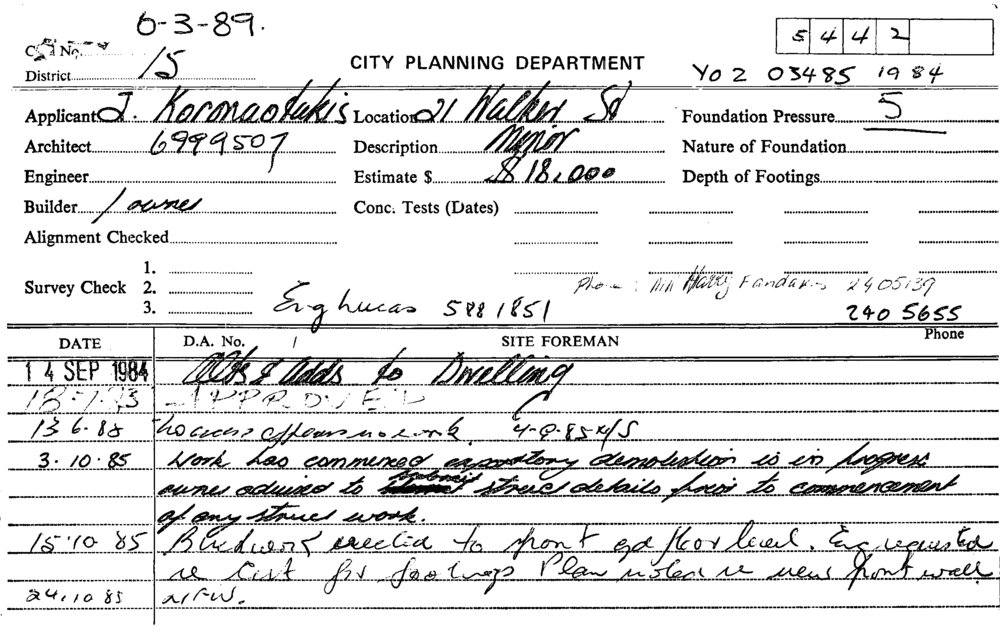 6-3-89.
5 4 4 2
No.
District 15
CITY PLANNING DEPARTMENT
Y02 03485 1984
Applicant J. Koronaotakis Location 21 Walker St Foundation Pressure 5
Architect 6999507 Description Minor Nature of Foundation
Engineer Estimate $ $18,000 Depth of Footings
Builder / owner Conc. Tests (Dates)
Alignment Checked
1.
Survey Check 2. Phone : Mr Harry Fandakis 2405139
3. Eng Lucas 588 1851 240 5655
DATE D.A. No. / SITE FOREMAN Phone
14 SEP 1984 Alts & Adds to Dwelling
APPROVED
13 6.85 no access appears no work. 4-9-85
3.10.85 Work has commenced demolition is in progress
owner advised to submit struct details prior to commencement
of any struct work.
15.10 85 Brickwork erected to front gd floor level. Eng requested
re Cert for footings Plan noted re new front wall
24.10 85